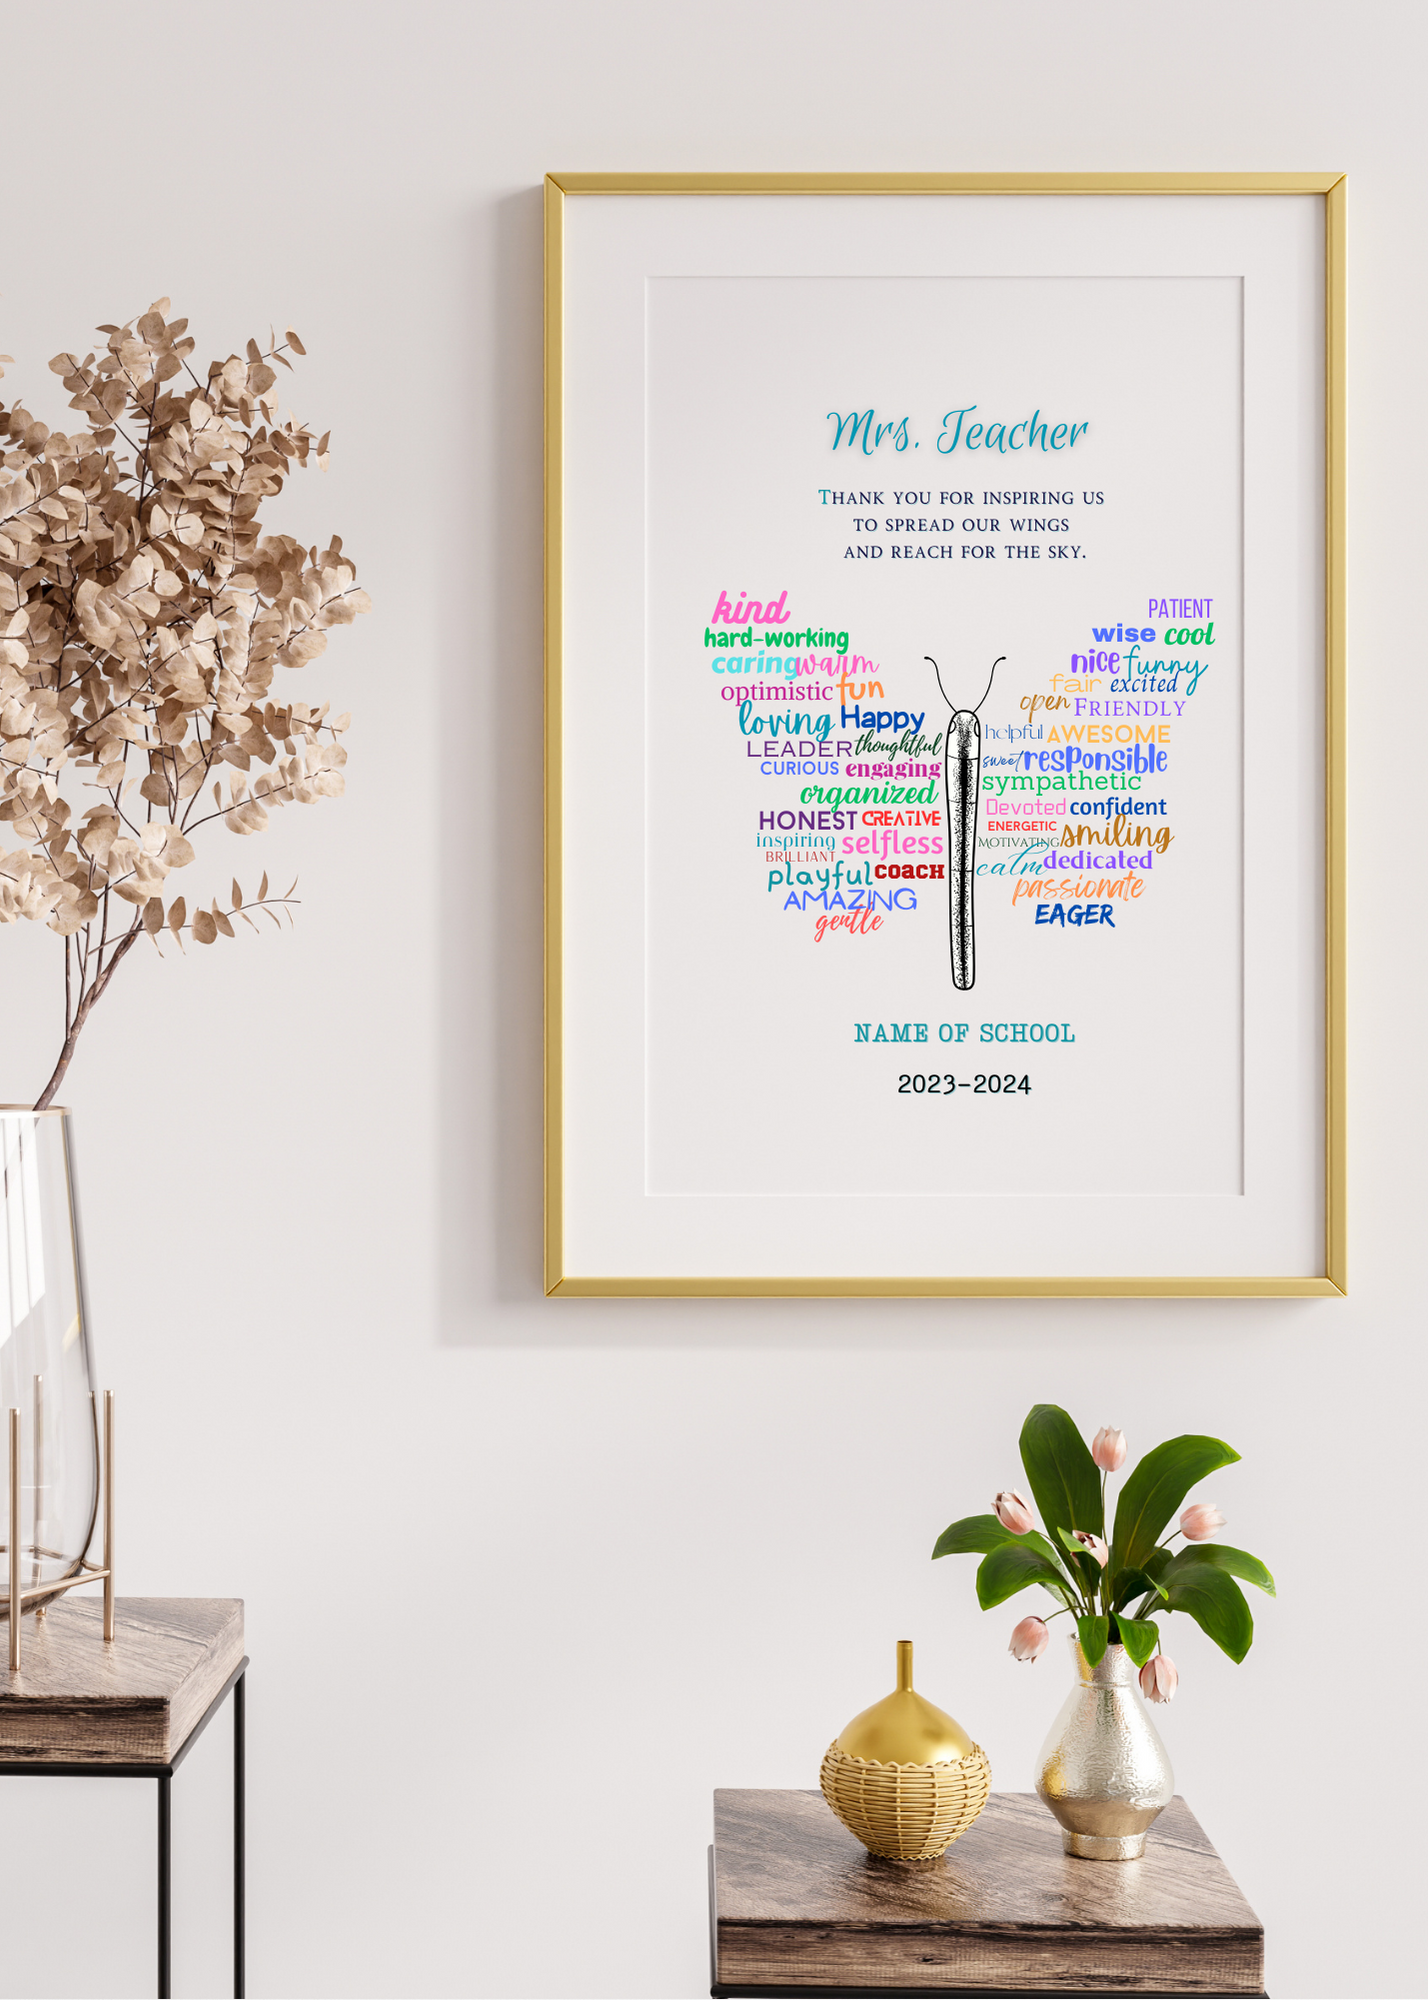 Mrs. Teacher
THANK YOU FOR INSPIRING US
TO SPREAD OUR WINGS
AND REACH FOR THE SKY.
kind
hard-working
caring warm
optimistic fun
loving Happy
LEADER thoughtful
CURIOUS engaging
organized
HONEST CREATIVE
inspiring selfless
BRILLIANT
playful COACH
AMAZING
gentle
PATIENT
wise cool
nice funny
fair excited
open FRIENDLY
helpful AWESOME
sweet responsible
sympathetic
Devoted confident
ENERGETIC smiling
MOTIVATING
calm dedicated
passionate
EAGER
NAME OF SCHOOL
2023-2024